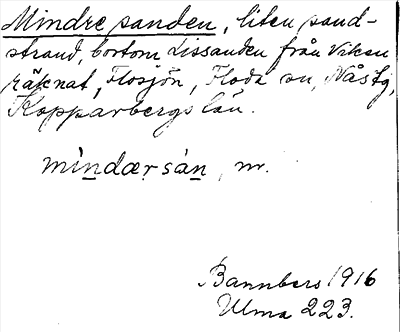 Mindre sanden, liten sand-
strand, bortom Lissanden från Viken
räknat, Flosjön, Floda sn, Nås tg,
Kopparbergs län.
mìndærsàn, m.
Bannbers 1916
Ulma 223.